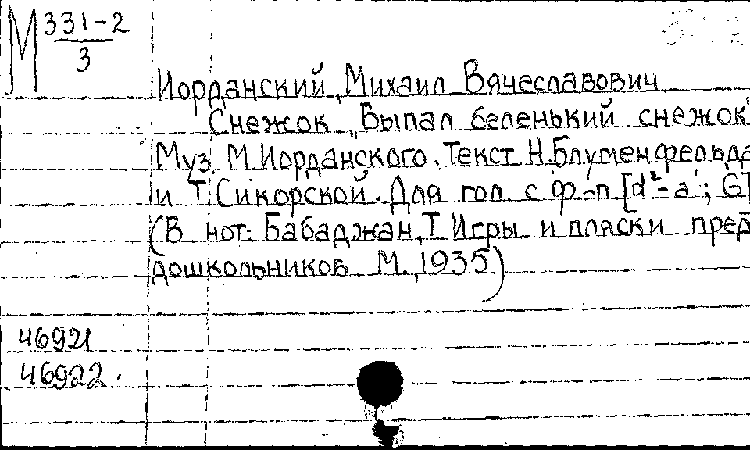 М 331-2
3
Иорданский, Михаил Вячеславович
Снежок „Выпал беленький снежок"
Муз. М. Иорданского. Текст Н. Блуменфельда
и Т. Сикорской. Для гол. с ф-п. [d²-a'; G]
(В нот: Бабаджан, Т. Игры и пляски пред
дошкольников М., 1935)
46921
46922.